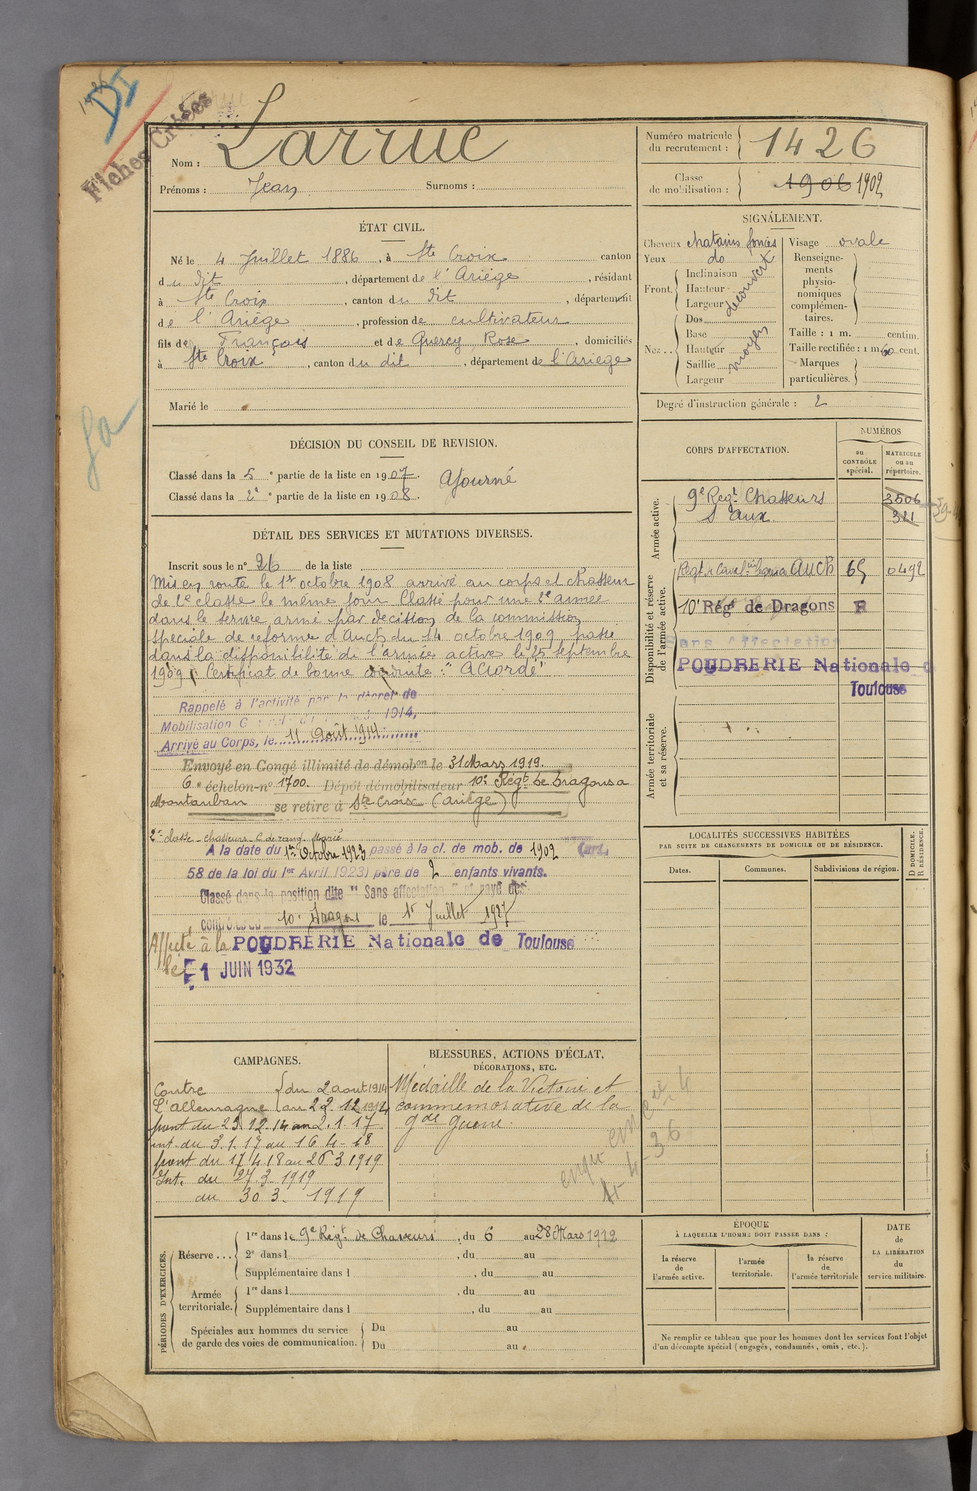 1926
DI
Fiches Créées
Nom : Larrue
Prénoms : Jean Surnoms :
Numéro matricule du recrutement : 1426
Classe de mobilisation : 1906 1902
ÉTAT CIVIL.
Né le 4 Juillet 1886, à Ste Croix canton
du dit, département de l'Ariège, résidant
à Ste Croix, canton du dit, département
de l'Ariège, profession de cultivateur
fils de François et de Quercy Rose, domiciliés
à Ste Croix, canton du dit, département de l'Ariège
Marié le
SIGNALEMENT.
Cheveux chatains foncés
Yeux do
Front. Inclinaison
Hauteur
Largeur
découvert
Nez.. Dos
Base
Hauteur
Saillie
Largeur
moyen
Visage ovale
Renseigne-
ments
physio-
nomiques
complémen-
taires.
Taille : 1 m. centim.
Taille rectifiée : 1 m 60 cent.
Marques
particulières.
Degré d'instruction générale : 2
DÉCISION DU CONSEIL DE REVISION.
Classé dans la 5e partie de la liste en 1907.
Classé dans la 2e partie de la liste en 1908.
Ajourné
DÉTAIL DES SERVICES ET MUTATIONS DIVERSES.
Inscrit sous le no 26 de la liste
Mis en route le 1er octobre 1908 arrivé au corps et chasseur
de 2e classe le même jour Classé pour une 2e année
dans le service armé par décision de la commission
spéciale de réforme d'Auch du 14 octobre 1909, passé
dans la disponibilité de l'armée active le 25 septembre
1909. Certificat de bonne conduite : "Accordé"
Rappelé à l'activité par le décret de
Mobilisation G 1914,
Arrivé au Corps, le 11 Août 1914
Envoyé en Congé illimité de démobon le 31 Mars 1919.
6e échelon-no 1700. Dépôt démobilisateur 10e Régt de Dragons à
Montauban se retire à Ste Croix (Ariège)
2e classe - chasseurs
A la date du 1er Octobre 1923 passé à la cl. de mob. de 1902 (art.
58 de la loi du 1er Avril 1923) père de 2 enfants vivants.
Classé dans la position dite " Sans affectation " et rayé des
contrôles du 10e Dragons le 1er Juillet 1927
Affecté à la POUDRERIE Nationale de Toulouse
le 1 JUIN 1932
CORPS D'AFFECTATION.
NUMÉROS
au CONTRÔLE spécial.
MATRICULE ou au répertoire.
Armée active.
9e Regt Chasseurs 3506
Auch 321
Disponibilité et réserve de l'armée active.
Auch 65 0492
10e Régt de Dragons R
Sans Affectation
POUDRERIE Nationale d
Toulouse
Armée territoriale et sa réserve.
LOCALITÉS SUCCESSIVES HABITÉES
PAR SUITE DE CHANGEMENTS DE DOMICILE OU DE RÉSIDENCE.
Dates. Communes. Subdivisions de région.
D DOMICILE.
R RÉSIDENCE.
CAMPAGNES.
Contre l'Allemagne du 2 aout 1914
au 22.12.1914
front du 23.12.14 au 2.1.17
int. du 3.1.17 au 16 4-18
front du 17 4 18 au 26 3 1919
Int. du 27 3. 1919
au 30 3. 1919
BLESSURES, ACTIONS D'ÉCLAT,
DÉCORATIONS, ETC.
Médaille de la Victoire et
commémorative de la
gde guerre.
PÉRIODES D'EXERCICES.
Réserve... 1re dans le 9e Régt de Chasseurs, du 6 au 28 Mars 1912
2e dans l , du au
Supplémentaire dans l , du au
Armée territoriale. 1re dans l , du au
Supplémentaire dans l , du au
Spéciales aux hommes du service
de garde des voies de communication.
Du au
Du au
ÉPOQUE
À LAQUELLE L'HOMME DOIT PASSER DANS :
la réserve de l'armée active.
l'armée territoriale.
la réserve de l'armée territoriale
DATE
de
LA LIBÉRATION
du
service militaire.
Ne remplir ce tableau que pour les hommes dont les services font l'objet
d'un décompte spécial (engagés, condamnés, omis, etc.).